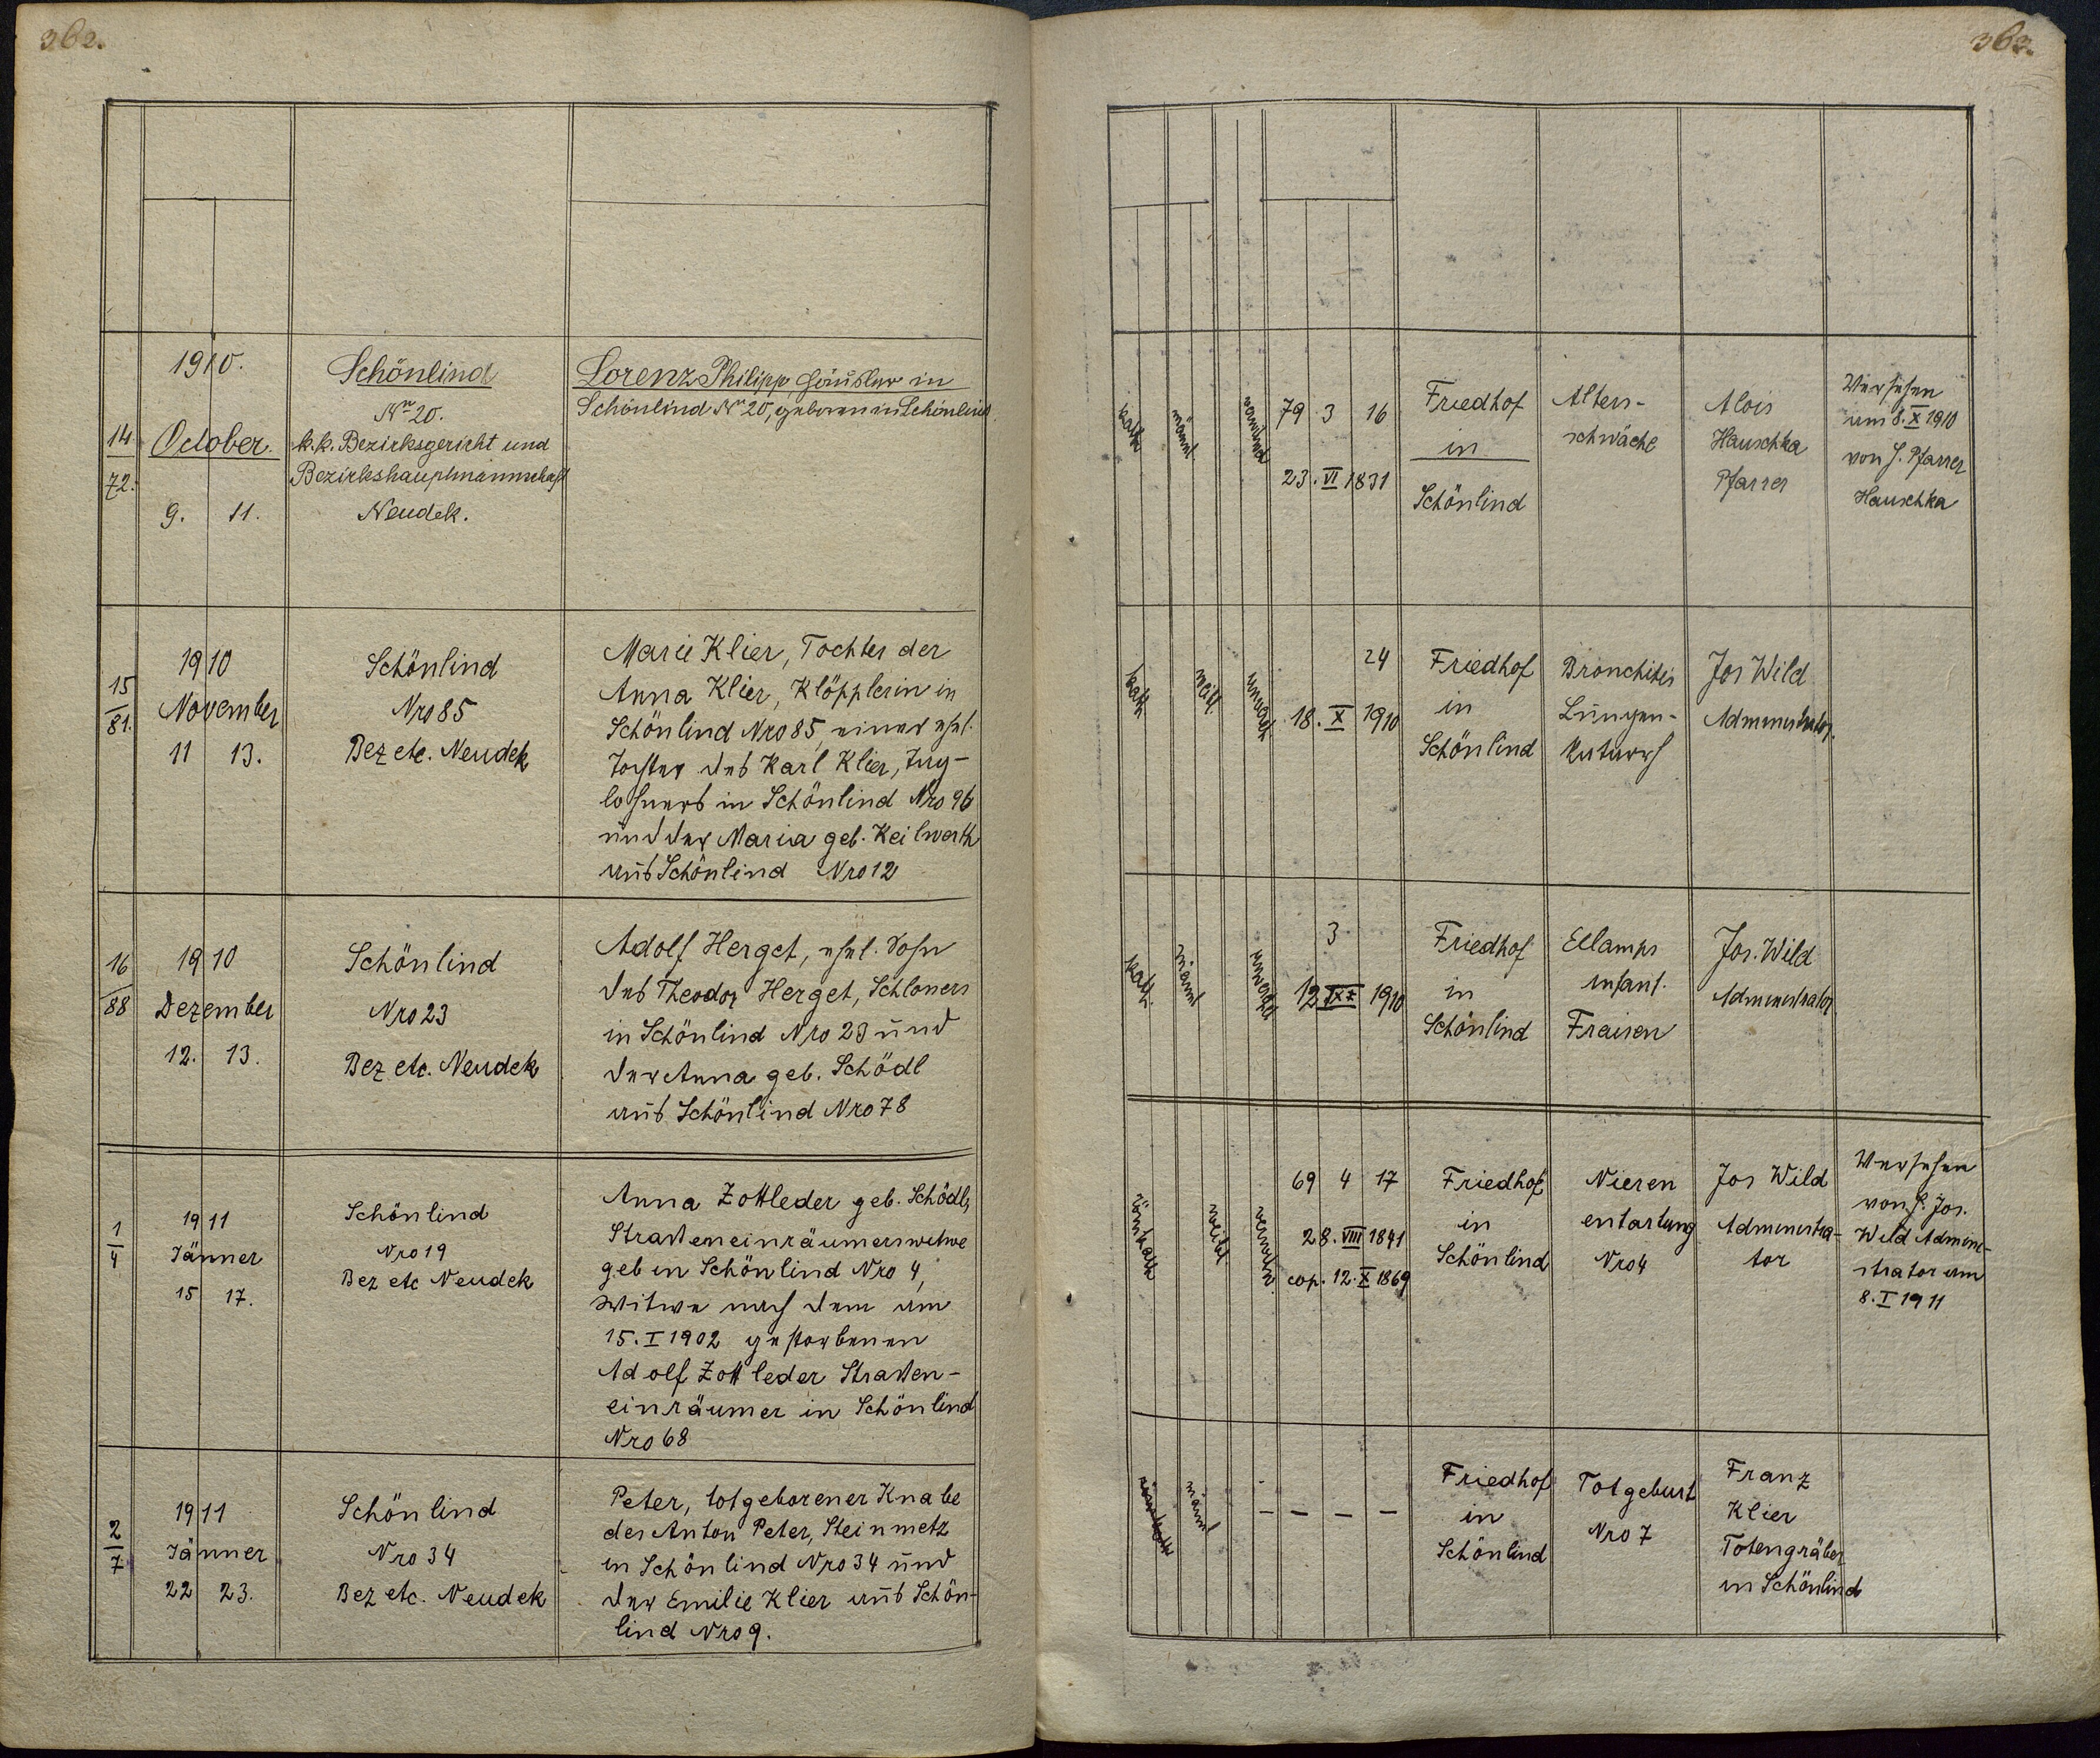 362.
14
72.
1910.
October.
9. 11.
Schönlind
Nro 20.
k.k. Bezirksgericht und
Bezirkshauptmannschaft
Neudek.
Lorenz Philipp, Häusler in
Schönlind Nro 20, geboren in Schönlind
15
81.
1910
November
11 13.
Schönlind
Nro 85
Bez etc. Neudek
Marie Klier, Tochter der
Anna Klier, Klöpplerin in
Schönlind Nro 85, einer ehel.
Tochter des Karl Klier, Tag-
lohners in Schönlind Nro 96
und der Maria geb. Keilwerth
aus Schönlind Nro 12
16
88
1910
Dezember
12. 13.
Schönlind
Nro 23
Bez etc. Neudek
Adolf Herget, ehel. Sohn
des Theodor Herget, Schlossers
in Schönlind Nro 23 und
der Anna geb. Schödl
aus Schönlind Nro 78
1
4
1911
Jänner
15 17.
Schönlind
Nro 19
Bez etc Neudek
Anna Zottleder geb. Schödl,
Strasseneinräumerswitwe
geb in Schönlind Nro 4,
Witwe nach dem am
15. I 1902 gestorbenen
Adolf Zottleder Strassen-
einräumer in Schönlind
Nro 68
2
7
1911
Jänner
22 23.
Schönlind
Nro 34
Bez etc. Neudek
Peter, totgeborener Knabe
des Anton Peter, Steinmetz
in Schönlind Nro 34 und
der Emilie Klier aus Schön-
lind Nro 9.
363.
kath
männl
79 3 16
23. VI 1831
Friedhof
in
Schönlind
Alters-
schwäche
Alois
Hauschka
Pfarrer
Versehen
am 8. X 1910
von H. Pfarrer
Hauschka
kath
weibl.
24
18. X 1910
Friedhof
in
Schönlind
Bronchitis
Lungen-
katarrh
Jos Wild
Administrator.
kath.
männl
3
12 1910
Friedhof
in
Schönlind
Fraisen
Jos. Wild
Administrator
römkath
weibl
verwitw.
69 4 17
28. VIII 1841
cop. 12. X 1869
Friedhof
in
Schönlind
Nieren
entartung
Nro 4
Jos Wild
Administra-
tor
Versehen
von H. Jos.
Wild Admini-
strator am
8. I 1911
römkath
männl
- - - -
Friedhof
in
Schönlind
Totgeburt
Nro 7
Franz
Klier
Totengräber
in Schönlind